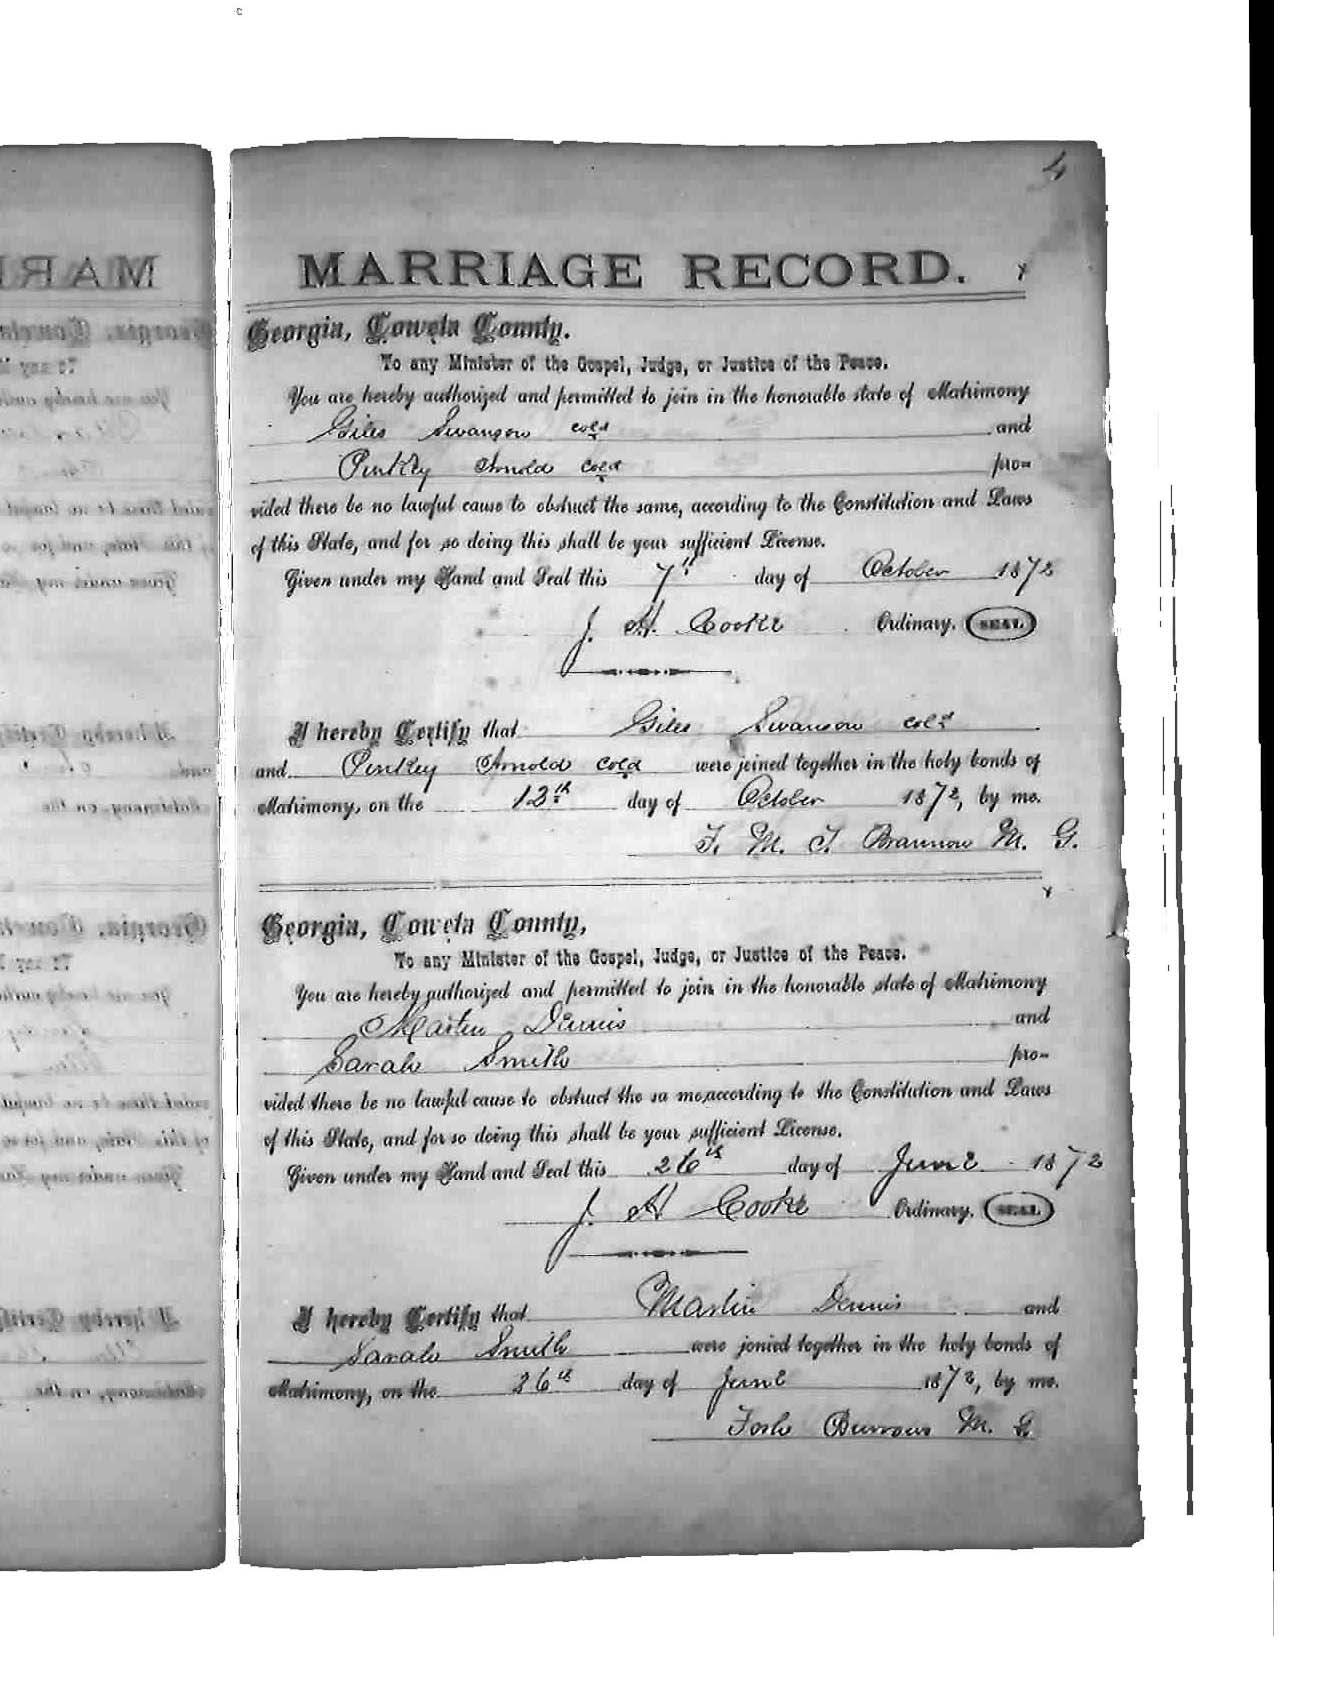 4
MARRIAGE RECORD.
Georgia, Coweta County.
To any Minister of the Gospel, Judge, or Justice of the Peace.
You are hereby authorized and permitted to join in the honorable state of Matrimony
Giles Swanson cold and
Pinkey Arnold cold pro-
vided there be no lawful cause to obstruct the same, according to the Constitution and Laws
of this State, and for so doing this shall be your sufficient License.
Given under my Hand and Seal this 7th day of October 1872
J. H. Cooke Ordinary. SEAL
I hereby Certify that Giles Swanson cold
and Pinkey Arnold cold were joined together in the holy bonds of
Matrimony, on the 13th day of October 1872, by me.
F. M. T. Brannon M. G.
Georgia, Coweta County,
To any Minister of the Gospel, Judge, or Justice of the Peace.
You are hereby authorized and permitted to join in the honorable state of Matrimony
Martin Dennis and
Sarah Smith pro-
vided there be no lawful cause to obstruct the sa me,according to the Constitution and Laws
of this State, and for so doing this shall be your sufficient License.
Given under my Hand and Seal this 26th day of June 1872
J. H. Cooke Ordinary. SEAL
I hereby Certify that Martin Dennis and
Sarah Smith were jonied together in the holy bonds of
Matrimony, on the 26th day of June 1872, by me.
Burrows M. G.